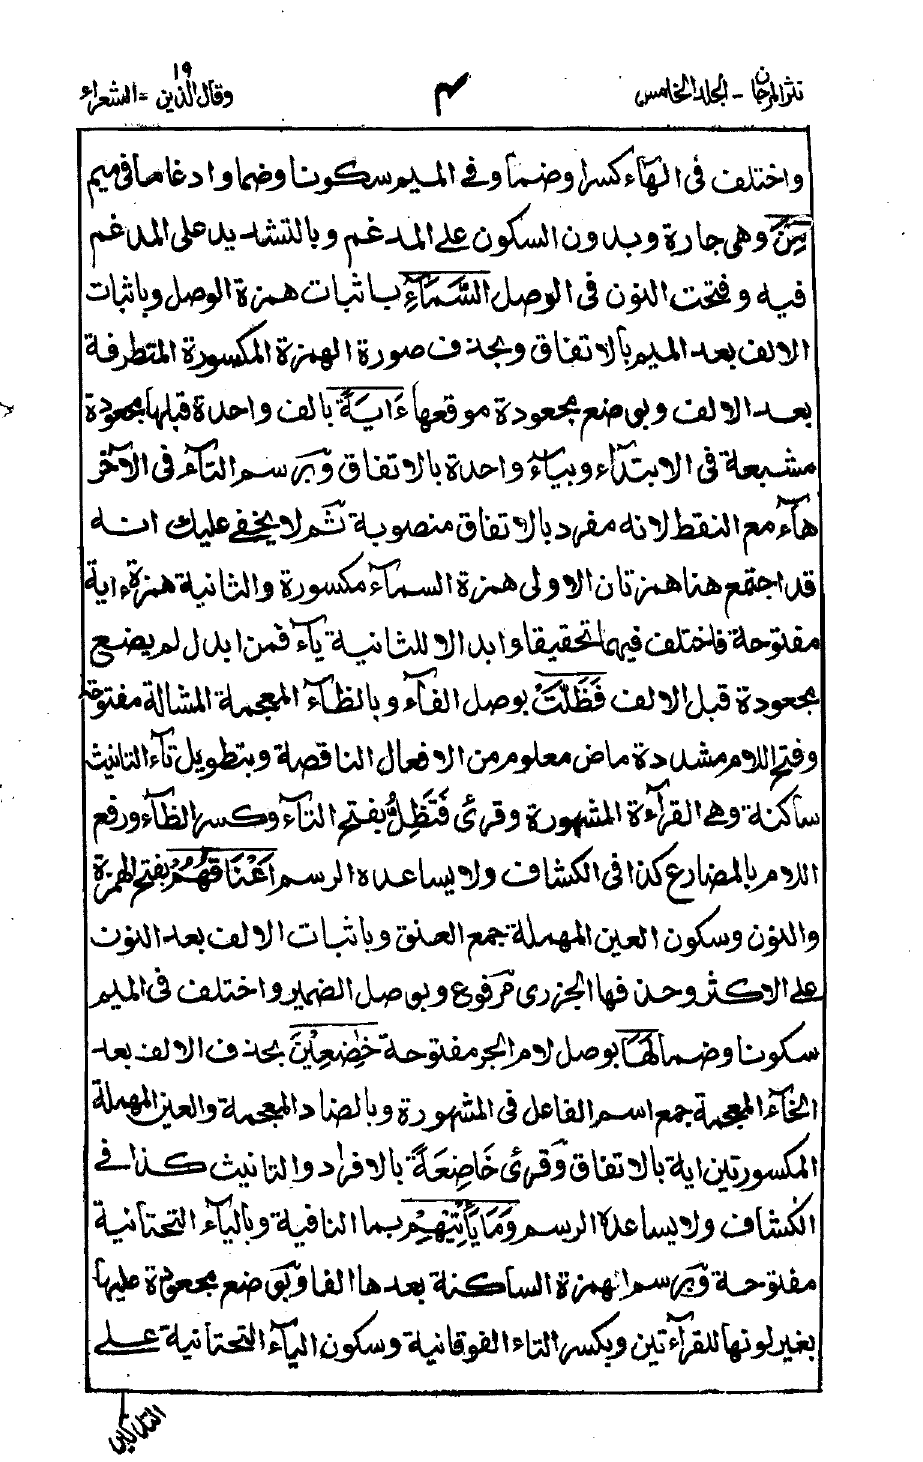 نثر المرجان - الجلد الخامس
٤
وقال الذين ١٩ = الشعراء
واختلف فى الهآء كسرا وضما وفى الميم سكونا وضما وادغامها فى ميم
مِنَ وهى جارة وبدون السكون على المدغم وبالتشديد على المدغم
فيه وفتحت النون فى الوصل السَّمَآءِ باثبات همزة الوصل وباثبات
الالف بعد الميم بالاتفاق وبحذف صورة الهمزة المكسورة المتطرفة
بعد الالف وبوضع مجعودة موقعها ءَايَةً بالف واحدة قبلها مجعودة
مشبعة فى الابتدآء وبيآء واحدة بالاتفاق وبرسم التآء فى الآخر
هآء مع النقط لانه مفرد بالاتفاق منصوبة ثم لا يخفى عليك انه
قد اجتمع هنا همزتان الاولى همزة السمآء مكسورة والثانية همزة ءاية
مفتوحة فاختلف فيهما تحقيقا وابدالا للثانية يآء فمن ابدل لم يضع
مجعودة قبل الالف فَظَلَّتْ بوصل الفآء وبالظآء المعجمة المشالة مفتوحة
وفتح اللام مشددة ماض معلوم من الافعال الناقصة وبتطويل تآء التانيث
ساكنة وهى القرآءة المشهورة وقرئ فَتَظِلُّ بفتح التآء وكسر الظآء ورفع
اللام بالمضارع كذا فى الكشاف ولا يساعده الرسم اَعْنَاقُهُمْ بفتح الهمزة
والنون وسكون العين المهملة جمع العنق وباثبات الالف بعد النون
على الاكثر وحذفها الجزرى مرفوع وبوصل الضمير واختلف فى الميم
سكونا وضما لَهَا بوصل لام الجر مفتوحة خٰضِعِيْنَ بحذف الالف بعد
الخآء المعجمة جمع اسم الفاعل فى المشهورة وبالضاد المعجمة والعين المهملة
المكسورتين اية بالاتفاق وقرئ خَاضِعَةً بالافراد والتانيث كذا فى
الكشاف ولا يساعده الرسم وَمَا يَأْتِيْهِمْ بما النافية وباليآء التحتانية
مفتوحة وبرسم الهمزة الساكنة بعدها الفا وبوضع مجعودة عليها
بغير لونها للقرآءتين وبكسر التاء الفوقانية وسكون اليآء التحتانية على